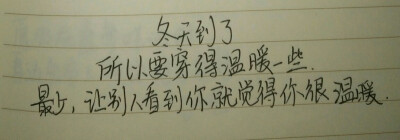 冬天到了
所以要穿得温暖一些.
最少,让别人看到你就觉得你很温暖.